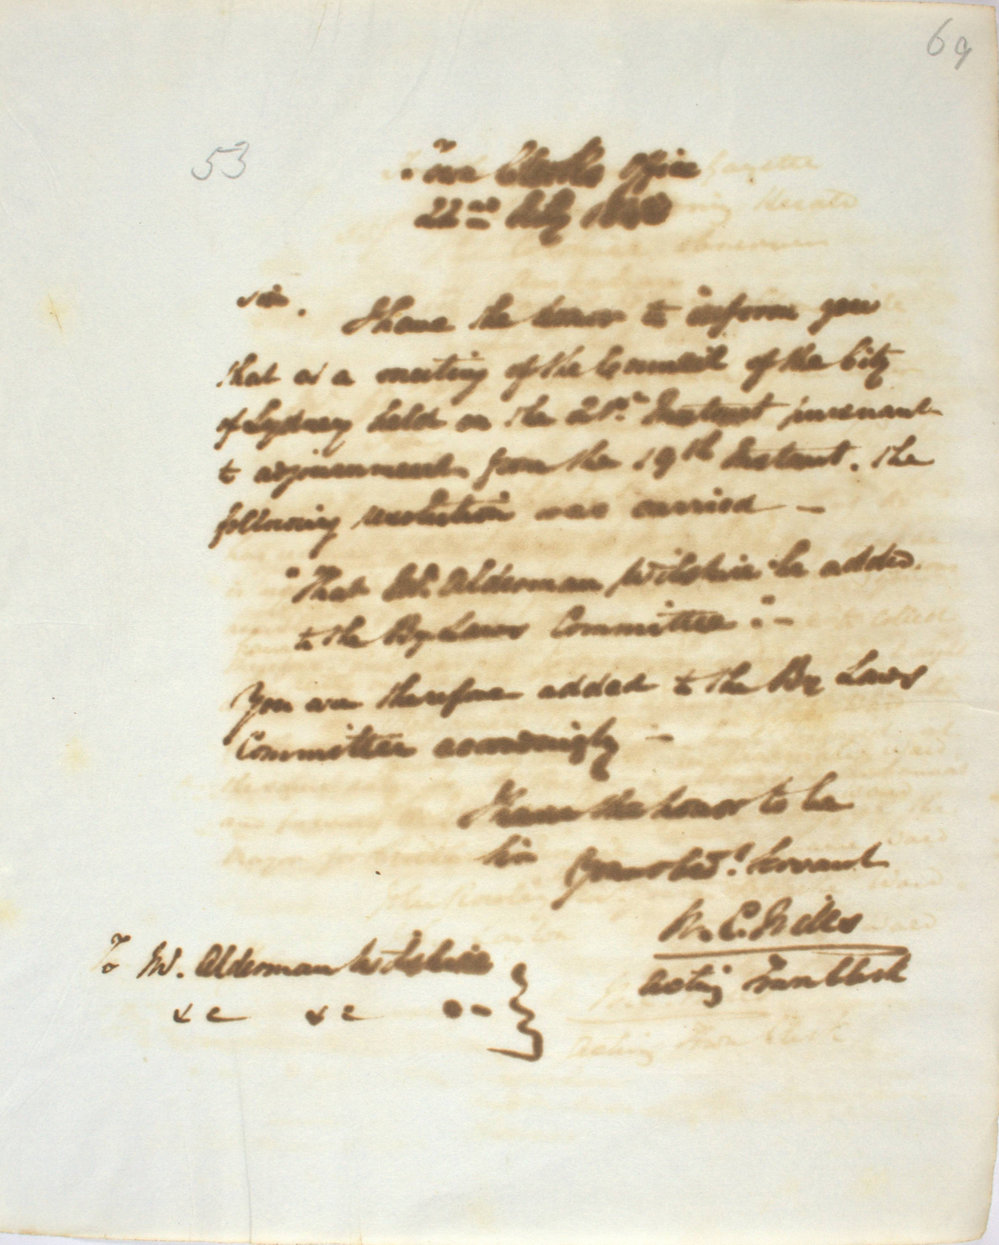 69
53
Town Clerks Office
22nd July
Sir.
I have the honor to inform you
that at a meeting of the Council of the City
of Sydney held on the 21st Instant pursuant
to adjournment from the 19th Instant. The
following resolution was carried —
"That Mr. Alderman Wilshire be added
to the By Laws Committee." —
You are therefore added to the By Laws
Committee accordingly —
I have the honor to be
Sir Your obedt. Servant
Acting Town Clerk
To Mr. Alderman Wilshire
&c &c